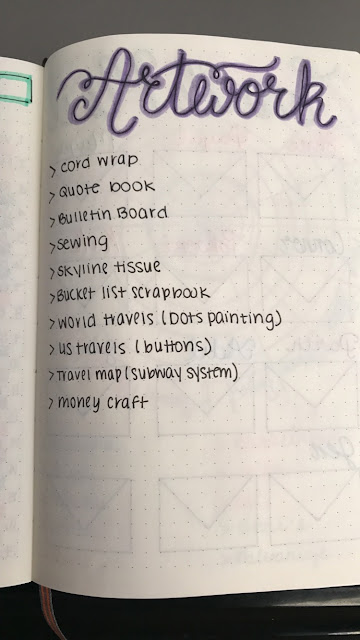 Artwork
> cord wrap
> Quote book
> Bulletin Board
> sewing
> skyline tissue
> Bucket list scrapbook
> world travels (Dots painting)
> us travels (buttons)
> Travel map (subway system)
> money craft